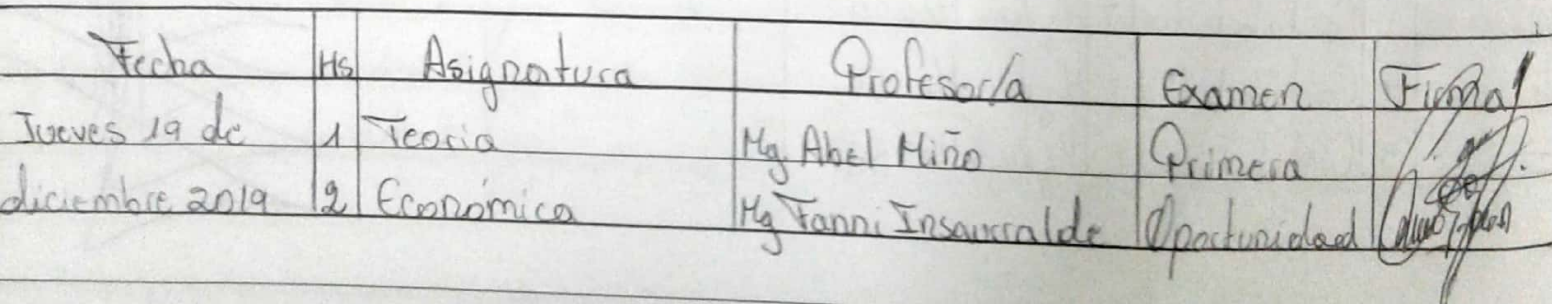 Fecha Hs Asignatura Profesor/a Examen Firma
Jueves 19 de 1 Teoria Mg Abel Miño Primera
diciembre 2019 2 Económica Mg Fanni Insaurralde Oportunidad